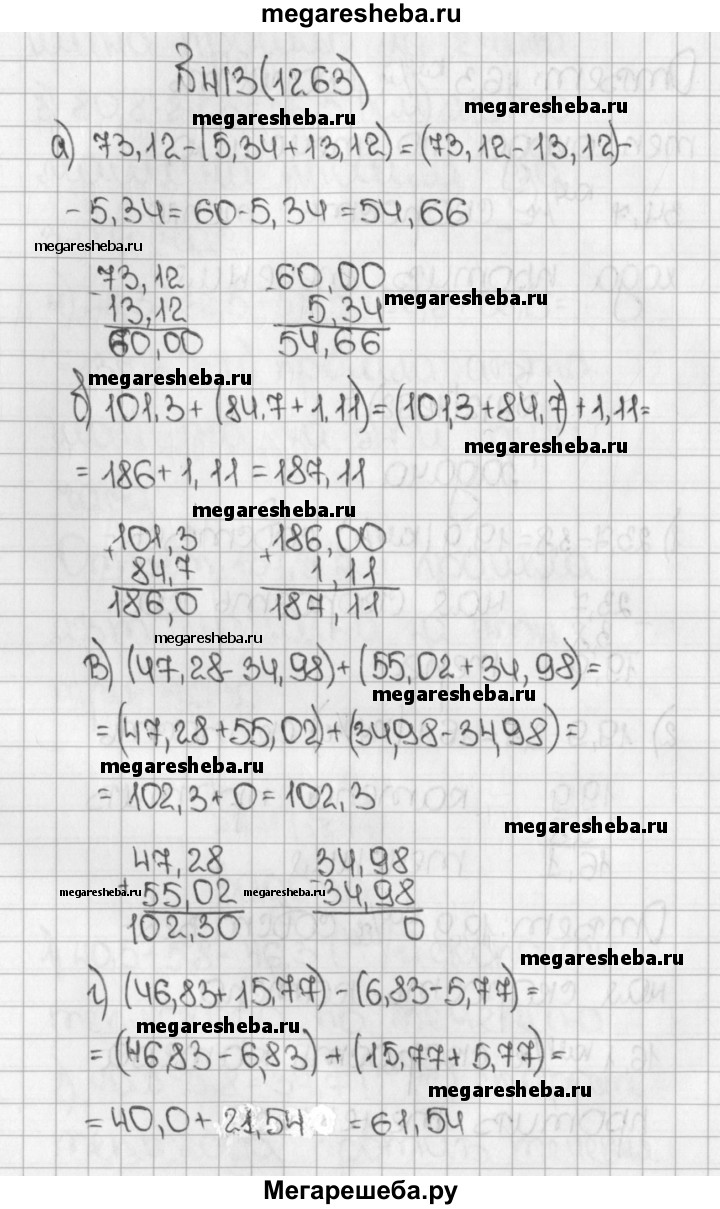 megaresheba.ru
В 413(1263)
megaresheba.ru
megaresheba.ru
а) 73,12-(5,34+13,12)=(73,12-13,12)-
-5,34=60-5,34=54,66
megaresheba.ru
-73,12 -60,00
megaresheba.ru
13,12 5,34
60,00 54,66
megaresheba.ru
б) 101,3+(84,7+1,11)=(101,3+84,7)+1,11=
megaresheba.ru
=186+1,11=187,11
megaresheba.ru
+101,3 +186,00
84,7 1,11
186,0 187,11
megaresheba.ru
в) (47,28-34,98)+(55,02+34,98)=
megaresheba.ru
=(47,28+55,02)+(34,98-34,98)=
megaresheba.ru
=102,3+0=102,3
megaresheba.ru
47,28 34,98
megaresheba.ru +55,02 megaresheba.ru -34,98
102,30 0
megaresheba.ru
г) (46,83+15,77)-(6,83-5,77)=
megaresheba.ru
=(46,83-6,83)+(15,77+5,77)=
megaresheba.ru
=40,0+21,54=61,54
Мегарешеба.ру